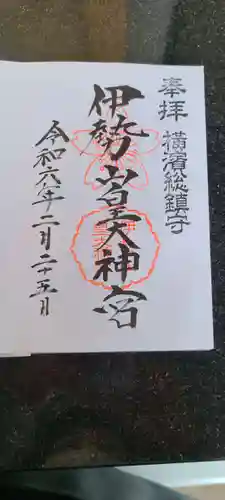 奉拝 横濱総鎮守
伊勢山皇大神宮
令和六年二月二十五日